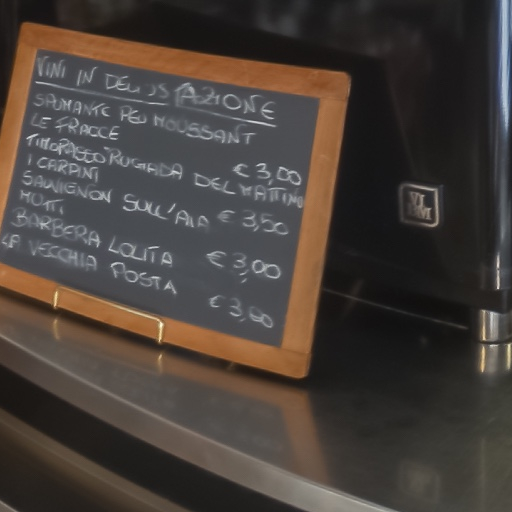 VINI IN DEGUSTAZIONE
SPUMANTE PEU MOUSSANT
LE FRACCE € 3,00
TIMORASSO RUGIADA DEL MATTINO
I CARPINI € 3,50
SAUVIGNON SULL'AIA
MOTTI € 3,00
BARBERA LOLITA
LA VECCHIA POSTA € 3,00